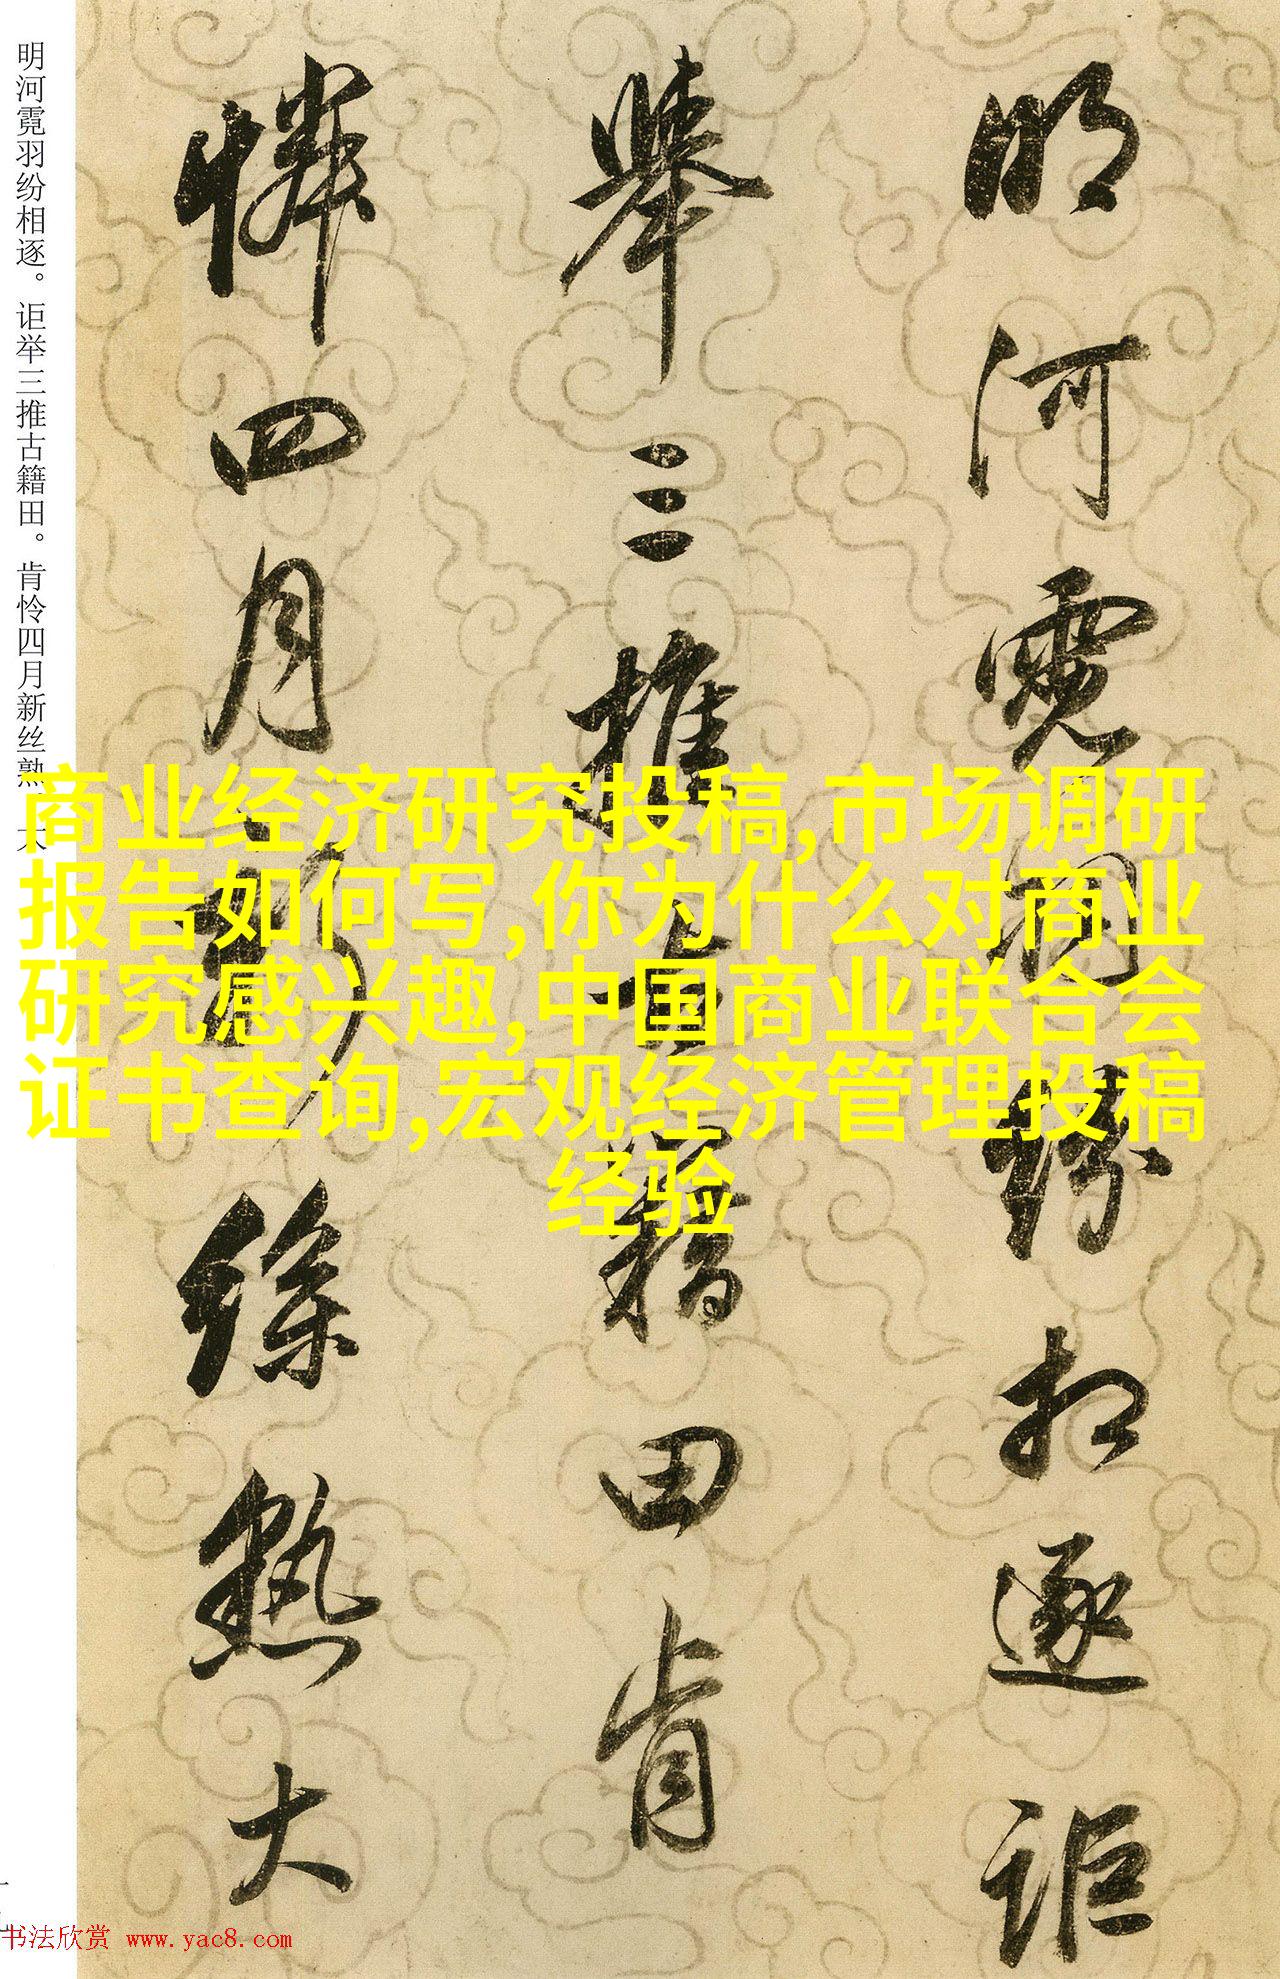 明河霓羽纷相逐。讵举三推古籍田。肯怜四月新丝熟
大
明河霓羽纷相逐讵
举三推古籍田肯
怜四月新丝熟大
商业经济研究投稿,市场调研
报告如何写,你为什么对商业
研究感兴趣,中国商业联合会
证书查询,宏观经济管理投稿
经验
书法欣赏 www.yac8.com